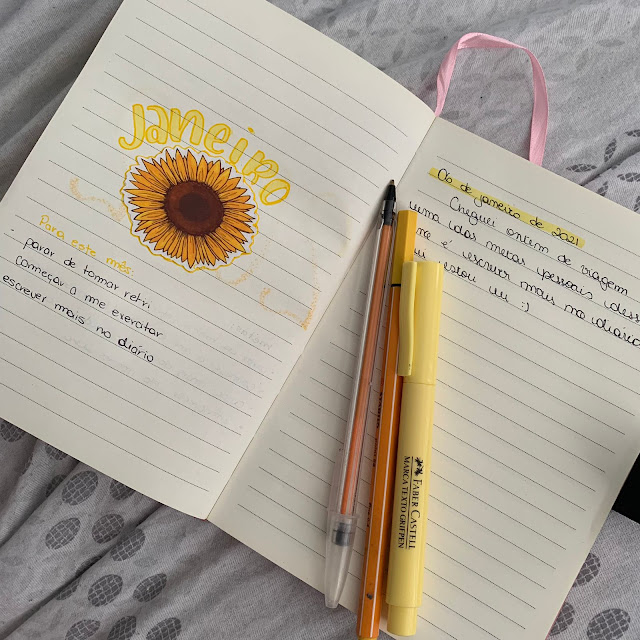 Janeiro
Para este mês:
parar de tomar retri
começar a me exercitar
escrever mais no diário
06 de janeiro de 2021
Cheguei ontem de viagem
uma das metas pessoais
é escrever mais no diário
estou :)
FABER CASTELL
MARCA TEXTO GRIFPEN